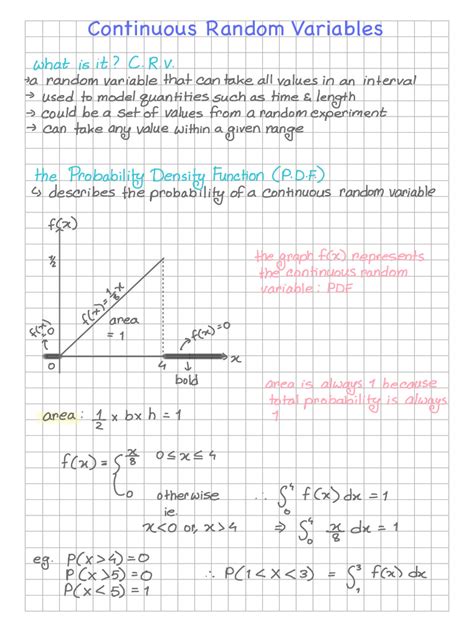 Continuous Random Variables
what is it? C.R.V.
→ a random variable that can take all values in an interval
→ used to model quantities such as time & length
→ could be a set of values from a random experiment
→ can take any value within a given range
the Probability Density Function (P.D.F.)
↳ describes the probability of a continuous random variable
f(x)
½
f(x)=⅛x
area
= 1
f(x)=0
f(x)=0
0
4
x
bold
the graph f(x) represents
the continuous random
variable : PDF
area is always 1 because
total probability is always
1
area : 1/2 x b x h = 1
f(x) = { x/8 0 ≤ x ≤ 4
0 otherwise
ie.
x<0 or, x>4
∴ ∫₀⁴ f(x) dx = 1
⇒ ∫₀⁴ x/8 dx = 1
eg. P(x>4)=0
P(x>5)=0
P(x<5)=1
∴ P(1<x<3) = ∫₁³ f(x) dx